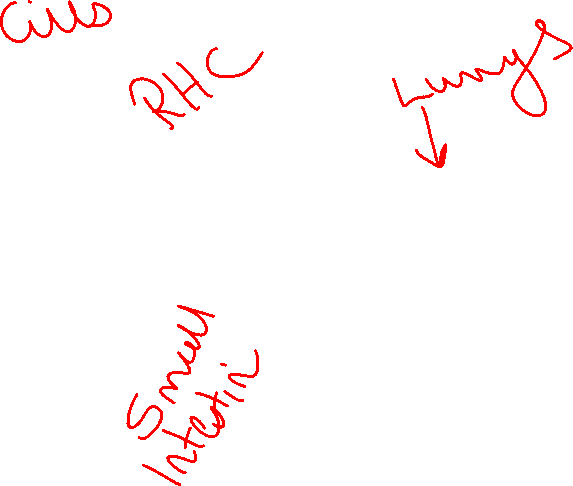 Cills
RHC
Lungs
Small
Intestin